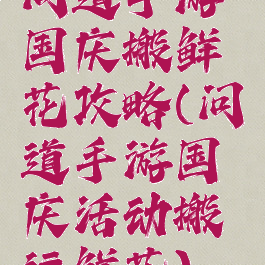 问道手游
国庆搬鲜
花攻略(问
道手游国
庆活动搬
运鲜花)